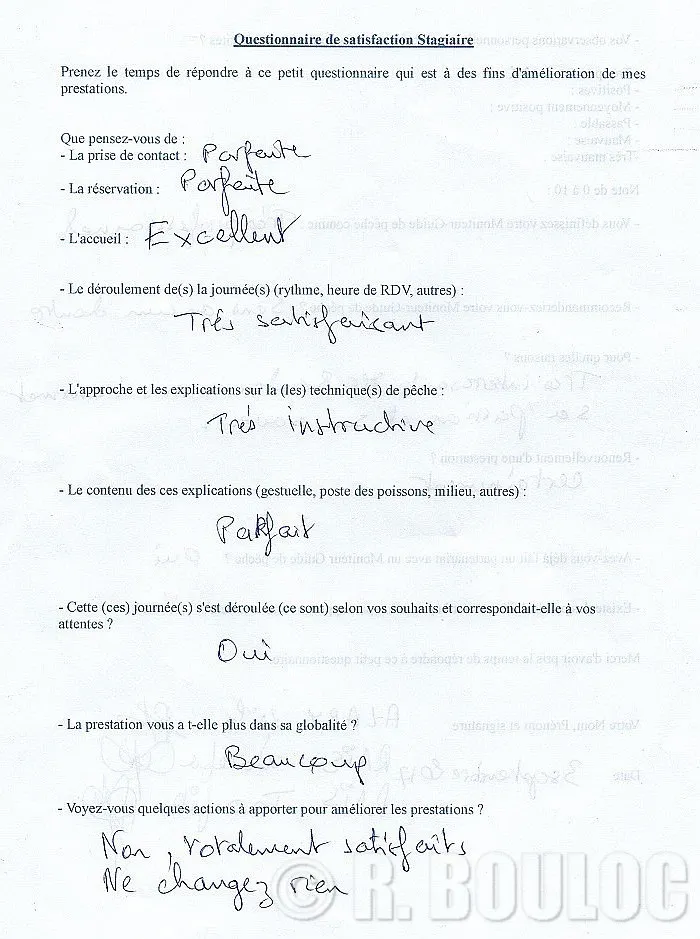 Questionnaire de satisfaction Stagiaire
Prenez le temps de répondre à ce petit questionnaire qui est à des fins d'amélioration de mes
prestations.
Que pensez-vous de :
- La prise de contact : Parfaite
- La réservation : Parfaite
- L'accueil : Excellent
- Le déroulement de(s) la journée(s) (rythme, heure de RDV, autres) :
Trés satisfaisant
- L'approche et les explications sur la (les) technique(s) de pêche :
Trés instructive
- Le contenu des ces explications (gestuelle, poste des poissons, milieu, autres) :
Parfait
- Cette (ces) journée(s) s'est déroulée (ce sont) selon vos souhaits et correspondait-elle à vos
attentes ?
Oui
- La prestation vous a t-elle plus dans sa globalité ?
Beaucoup
- Voyez-vous quelques actions à apporter pour améliorer les prestations ?
Non, totalement satisfaits
Ne changez rien
© R. BOULOC